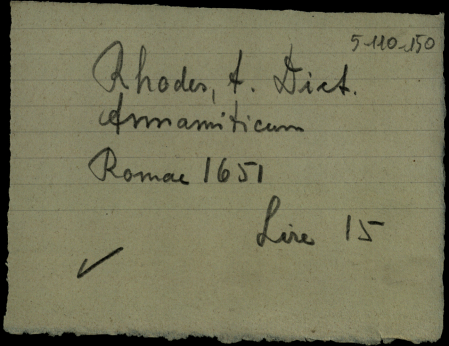 5-110-150
Rhodes, A. Dict.
Annamiticum
Romae 1651
Lire 15